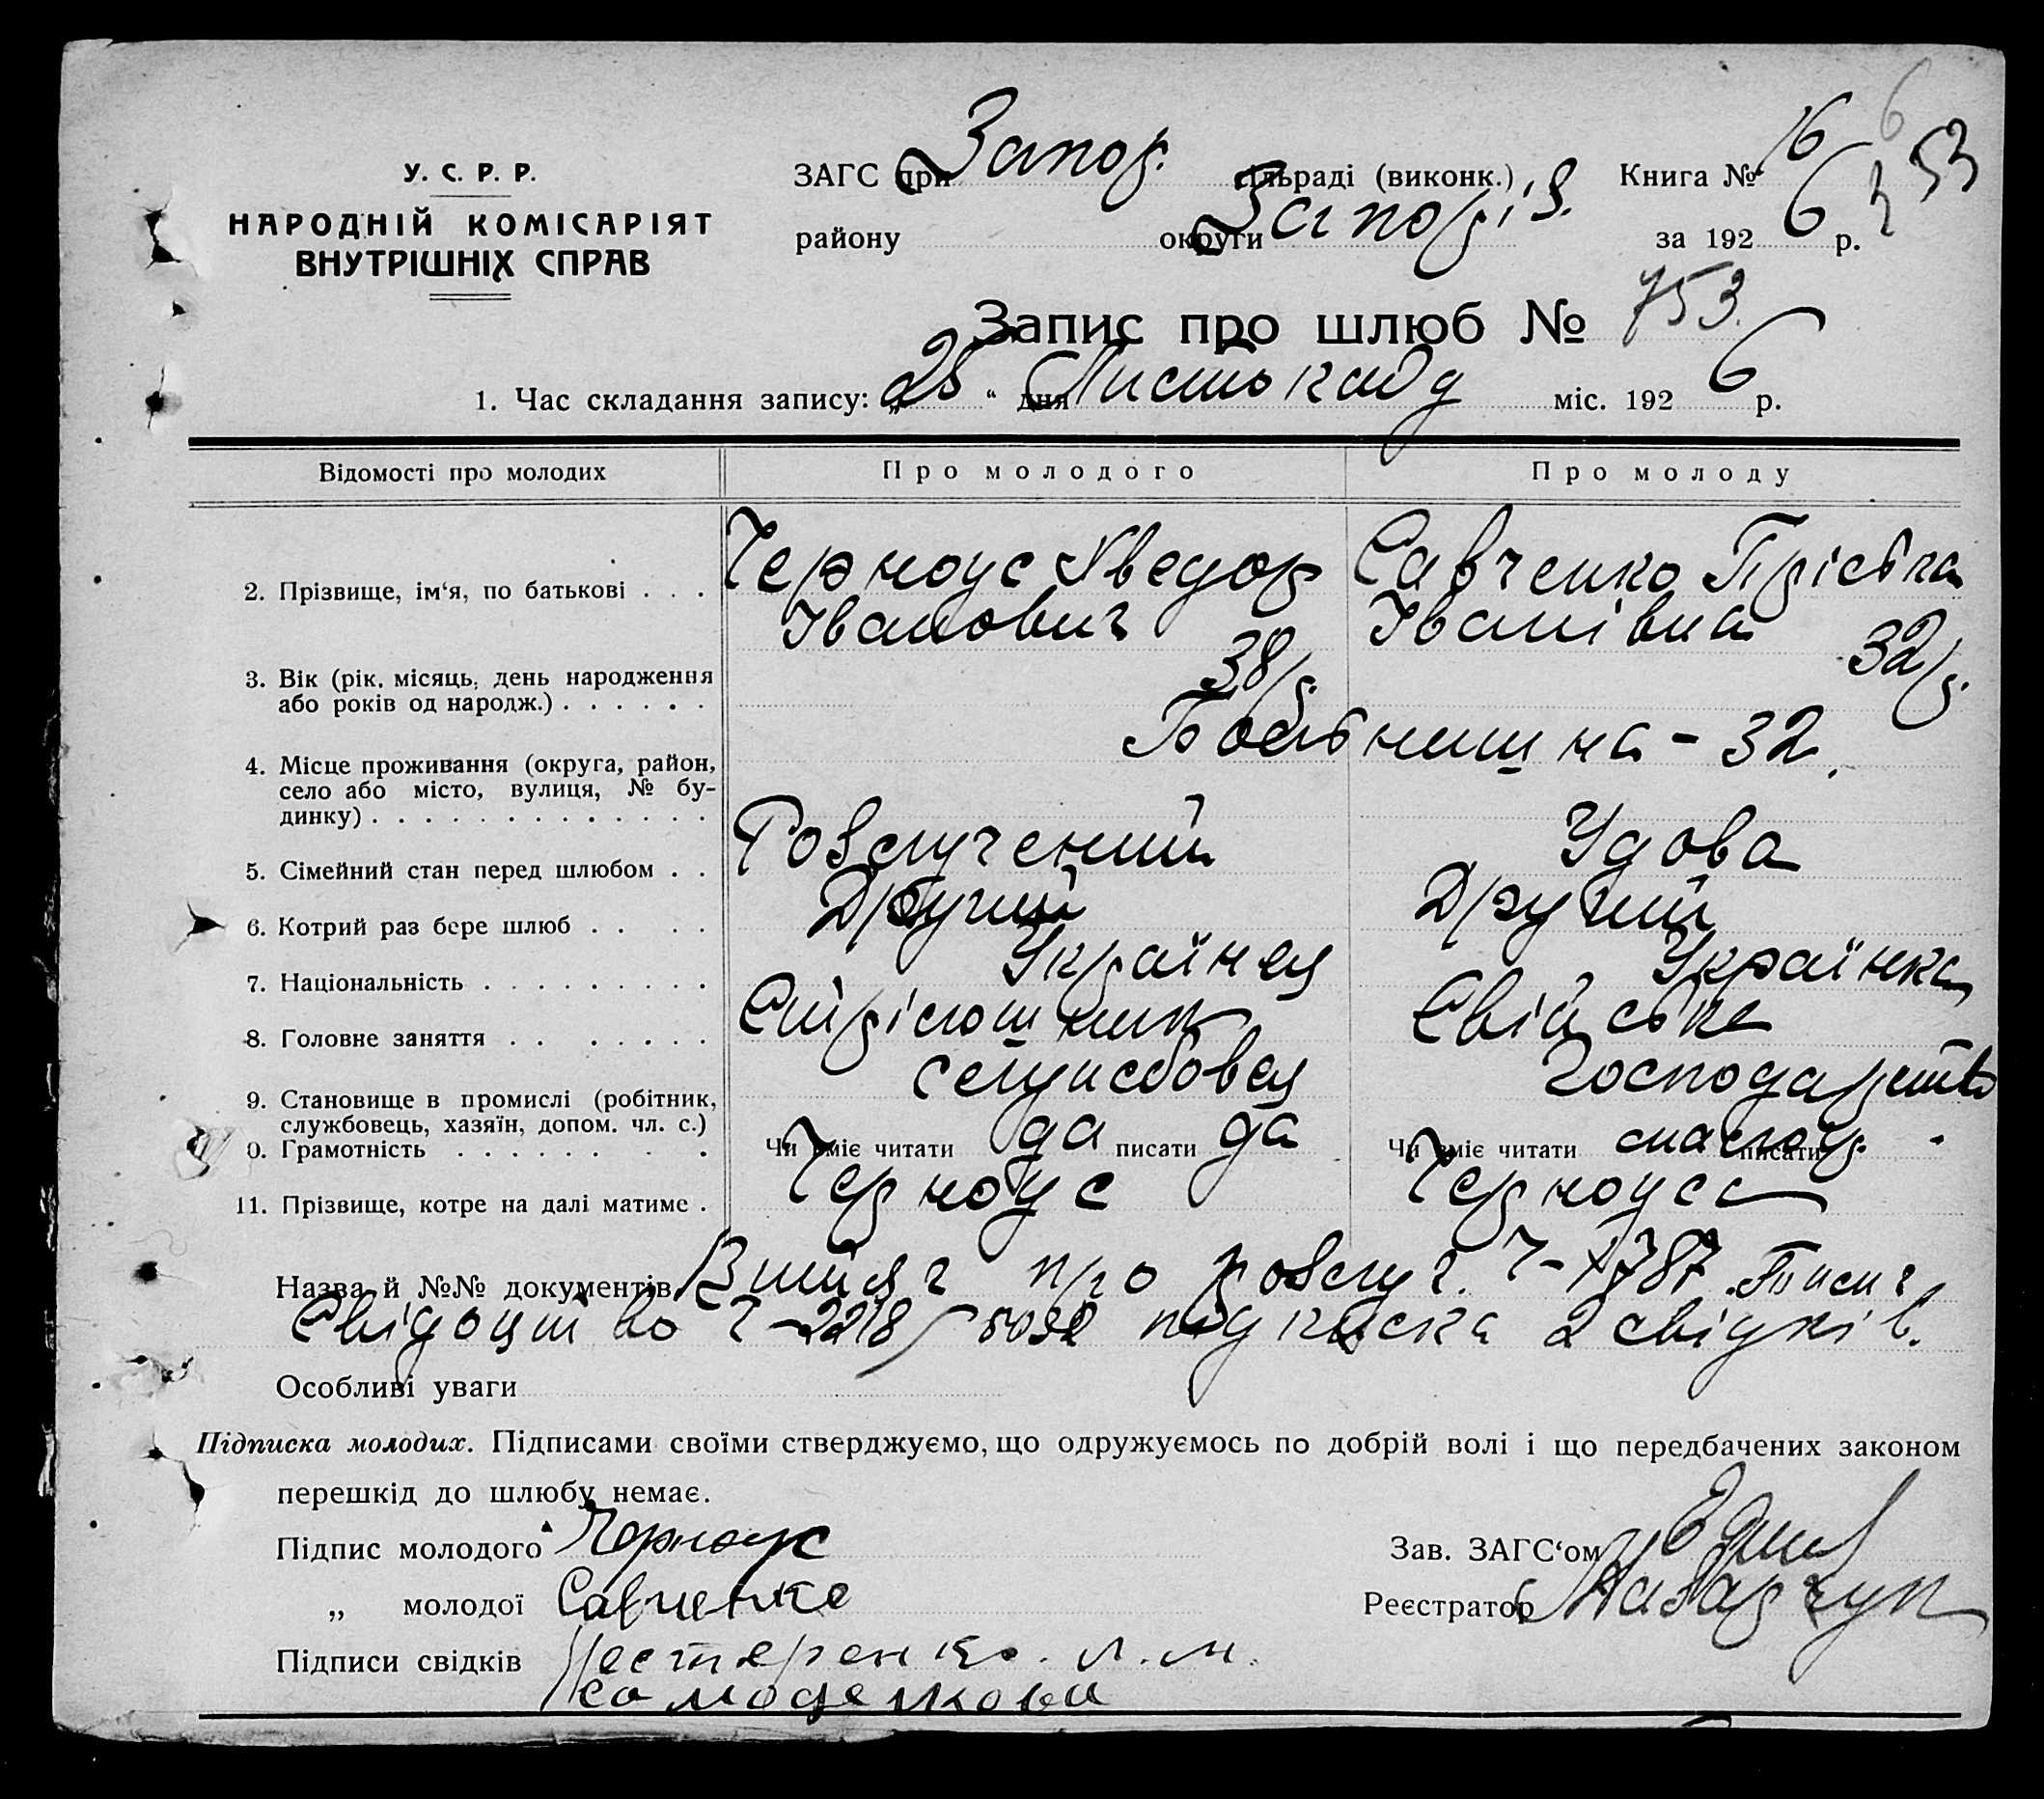 У. С. Р. Р.
НАРОДНІЙ КОМІСАРІЯТ
ВНУТРІШНІХ СПРАВ
ЗАГС при Запор. сільраді (виконк.) Книга № 16
району округи Запоріз. за 1926 р.
6
Запис про шлюб № 753.
1. Час складання запису: „ “ дня Листокаду міс. 1926 р.
Відомості про молодих Про молодого Про молоду
2. Прізвище, ім‘я, по батькові . . . Черноус Хведор Іванович Савченко Пріська Іванівна
3. Вік (рік, місяць, день народження або років од народж.) . . . . . . 38/р. 32/р.
4. Місце проживання (округа, район, село або місто, вулиця, № будинку) . . . . . . . . . . . . . . - 32.
5. Сімейний стан перед шлюбом . . Розлучений Удова
6. Котрий раз бере шлюб . . . . Другий Другий
7. Національність . . . . . . . . . Українец Українка
8. Головне заняття . . . . . . . Свійське
9. Становище в промислі (робітник, службовець, хазяїн, допом. чл. с.) служсбовец господарств
0. Грамотність . . . . . . . . Чи вміє читати да писати да Чи вміє читати писати
11. Прізвище, котре на далі матиме . Черноус Черноус
Назва й №№ документів Витяг про розлуч. Ч-1787.
Свідоцтво Ч-2218/5092 підписка 2 свідків.
Особливі уваги
Підписка молодих. Підписами своїми стверджуємо, що одружуємось по добрій волі і що передбачених законом
перешкід до шлюбу немає.
Підпис молодого Черноус Зав. ЗАГС‘ом
„ молодої Савченко Реєстратор Назарчук
Підписи свідків Нестеренко. Л. М.
Самоделкова